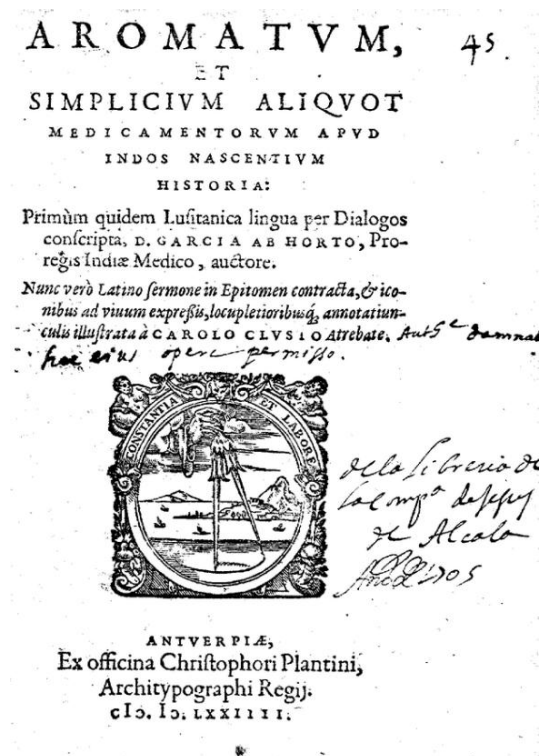 AROMATVM,
45.
ET
SIMPLICIVM ALIQVOT
MEDICAMENTORVM APVD
INDOS NASCENTIVM
HISTORIA:
Primùm quidem Lusitanica lingua per Dialogos
conscripta, D. GARCIA AB HORTO, Pro-
regis Indiæ Medico, auctore.
Nunc verò Latino sermone in Epitomen contracta, & ico-
nibus ad viuum expreßis, locupletioribusq́; annotatiun-
culis illustrata à CAROLO CLVSIO Atrebate.
Auth.e damnat
hoc eius opere permisso.
CONSTANTIA ET LABORE
de la Libreria de
la Comp.a de Jesus
de Alcala
Año 1705
ANTVERPIÆ,
Ex officina Christophori Plantini,
Architypographi Regij.
cIɔ. Iɔ. LXXIIII.